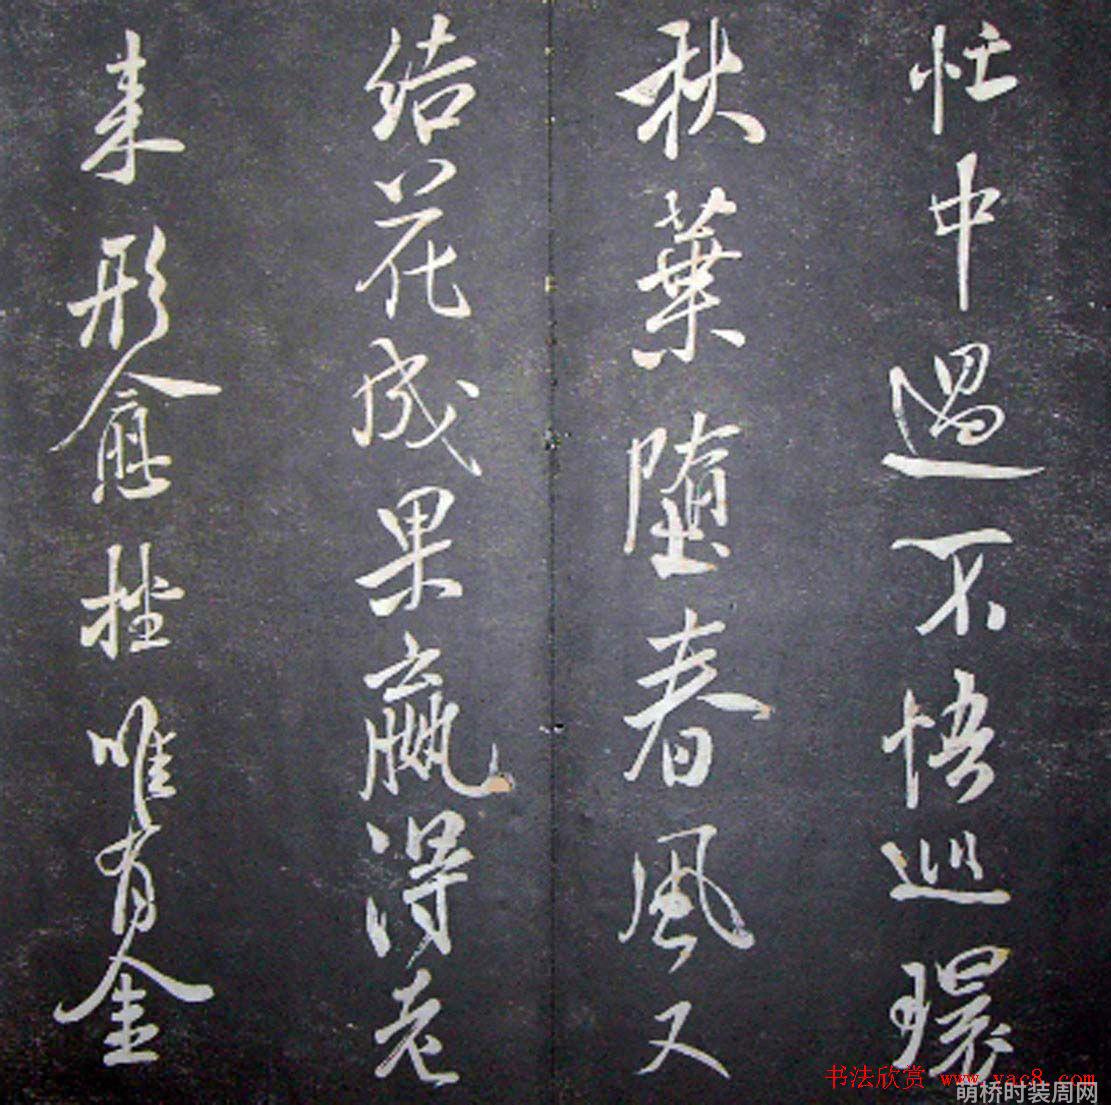 忙中過不悟巡環
秋葉墮春風又
結花成果贏得老
来形愈拙唯有金
书法欣赏 www.yac8.com
萌桥时装周网